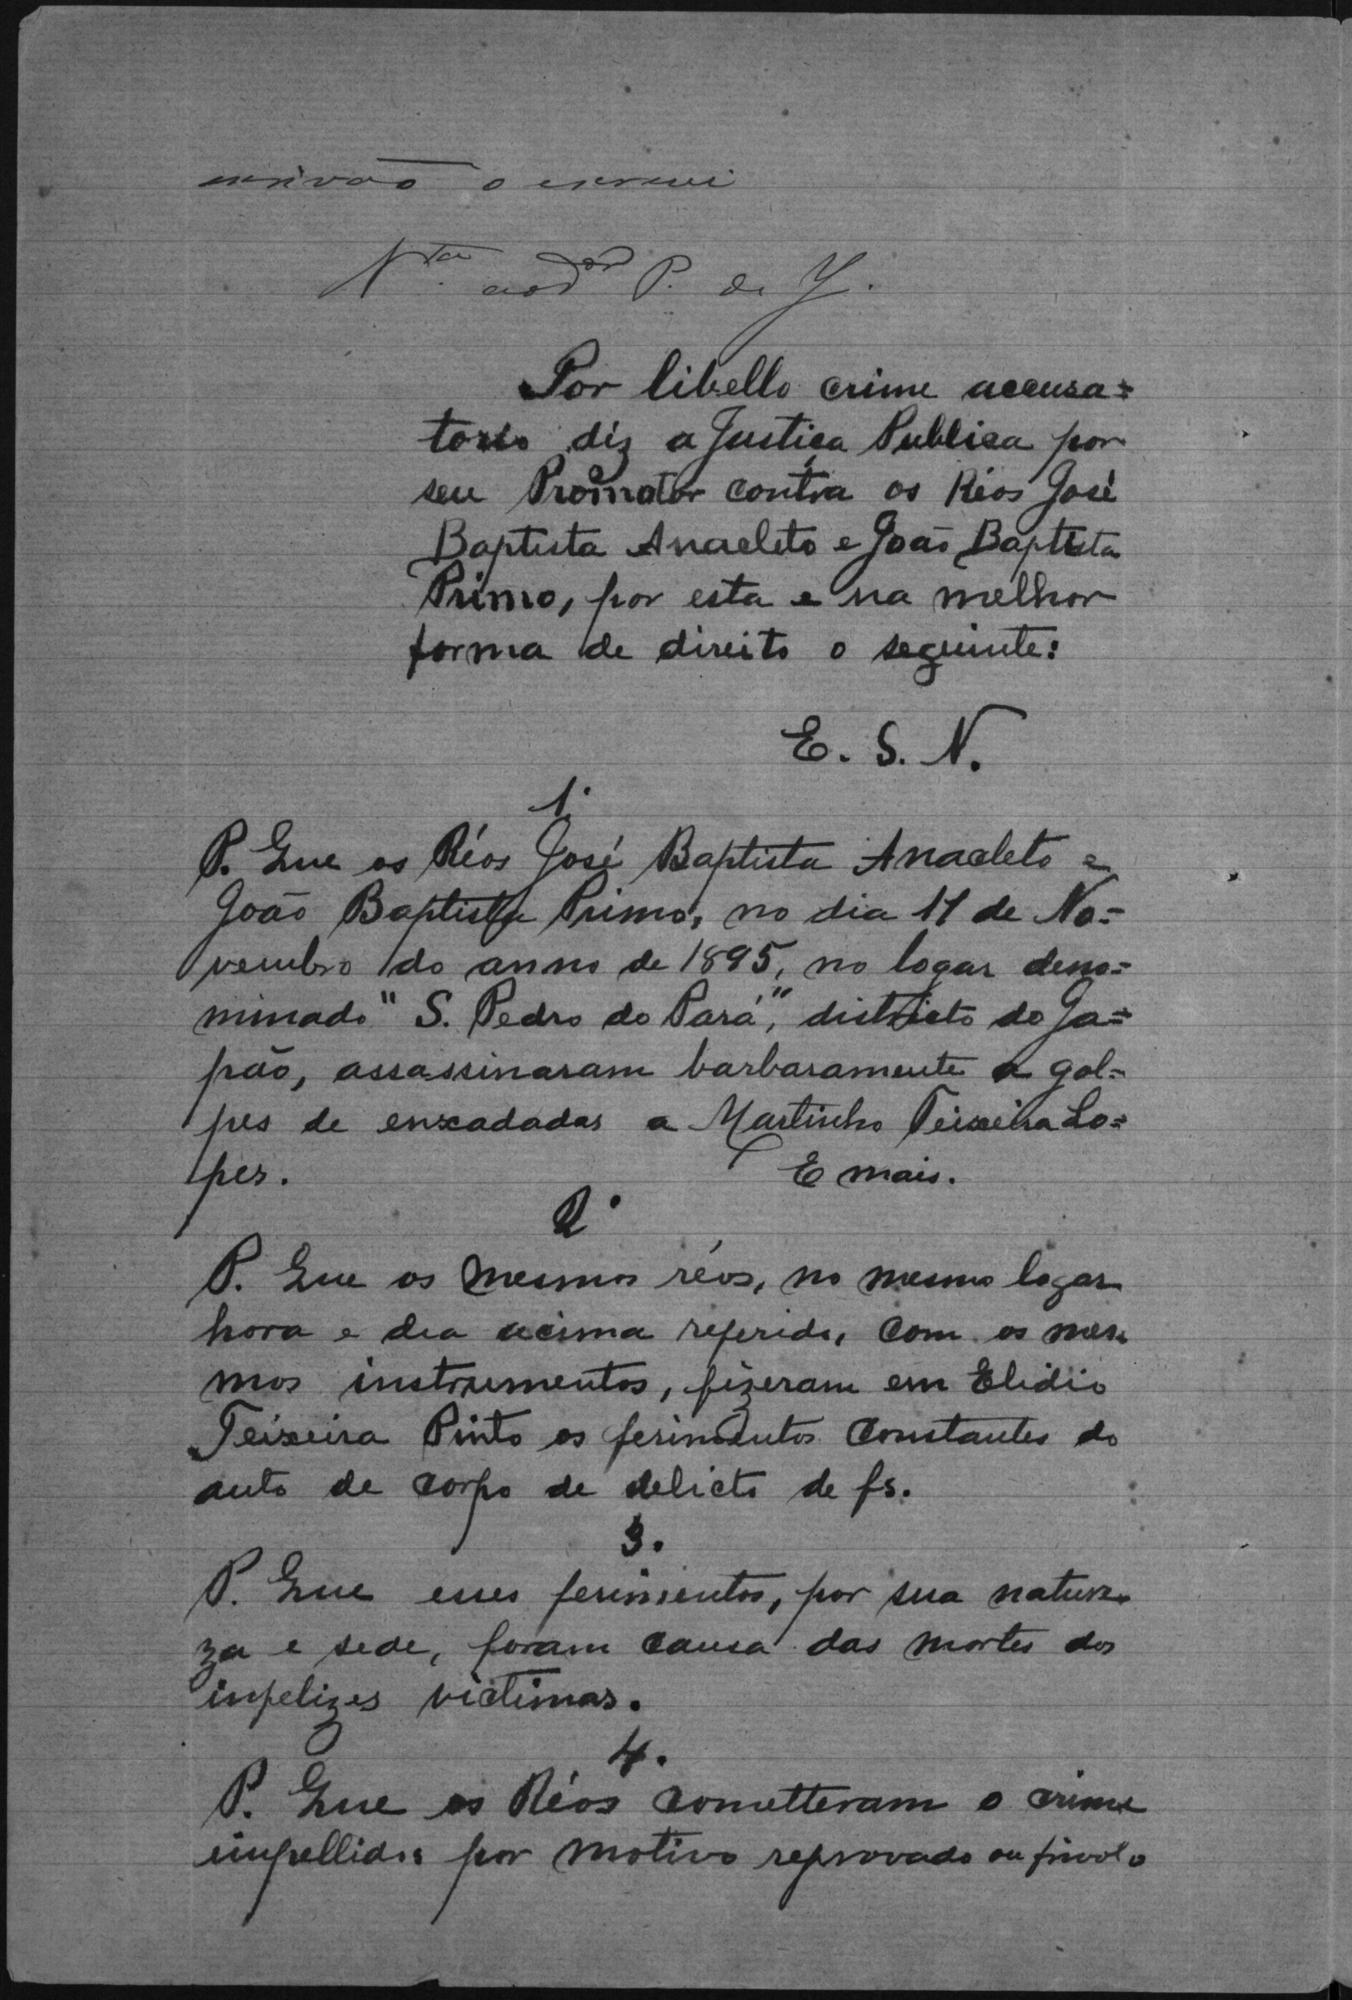 escrivão o escrevi
V.ta ao Dr P. de J.
Por libello crime accusa=
torio diz a Justiça Publica por
seu Promotor contra os Réos José
Baptista Anacleto e João Baptista
Primo, por esta e na melhor
forma de direito o seguinte:
E. S. N.
1.
P. Que os Réos José Baptista Anacleto e
João Baptista Primo, no dia 11 de No=
vembro do anno de 1895, no logar deno=
minado "S. Pedro do Pará", districto do Ja=
pão, assassinaram barbaramente a gol=
pes de enxadadas a Martinho Teixeira Lo=
pes. E mais.
2.
P. Que os mesmos réos, no mesmo logar
hora e dia acima referido, com os mes
mos instrumentos, fizeram em Elidio
Teixeira Pinto os ferimentos constantes do
auto de corpo de delicto de fs.
3.
P. Que esses ferimentos, por sua nature
za e sede, foram causa das mortes dos
infelizes victimas.
4.
P. Que os Réos cometteram o crime
impellidos por motivo reprovado ou frivolo